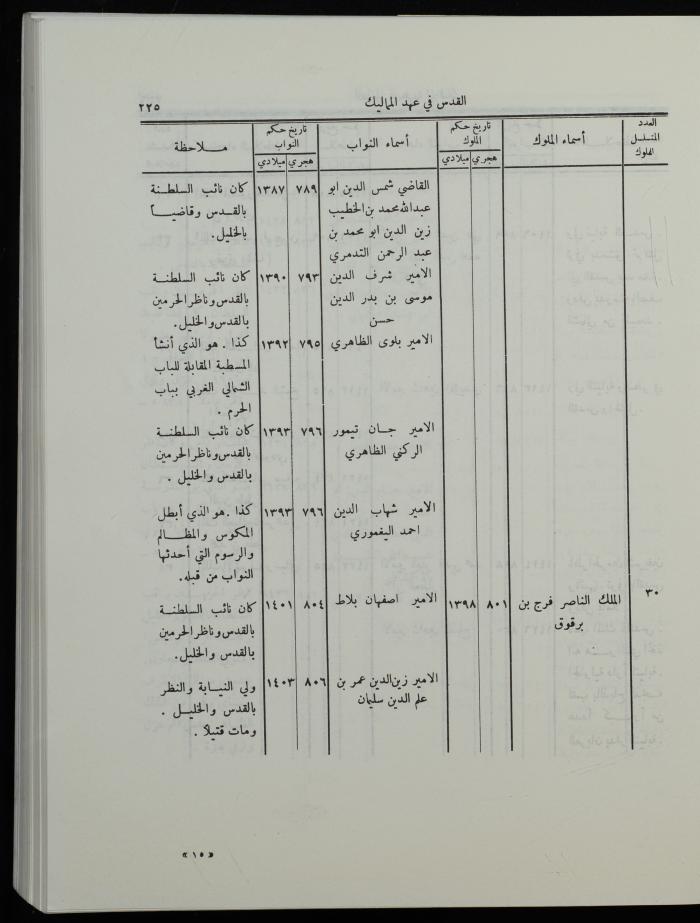 القدس في عهد المماليك
٢٢٥
العدد
المتسلسل
للملوك
أسماء الملوك
تاريخ حكم
الملوك
هجري ميلادي
أسماء النواب
تاريخ حكم
النواب
هجري ميلادي
ملاحظة
القاضي شمس الدين ابو ٧٨٩ ١٣٨٧ كان نائب السلطنة
عبدالله محمد بن الخطيب بالقدس وقاضياً
زين الدين ابو محمد بن بالخليل.
عبد الرحمن التدمري
الامير شرف الدين ٧٩٣ ١٣٩٠ كان نائب السلطنة
موسى بن بدر الدين بالقدس وناظر الحرمين
حسن بالقدس والخليل.
الامير بلوى الظاهري ٧٩٥ ١٣٩٢ كذا. هو الذي أنشأ
المسطبة المقابلة للباب
الشمالي الغربي بباب
الحرم.
الامير جان تيمور ٧٩٦ ١٣٩٣ كان نائب السلطنة
الركني الظاهري بالقدس وناظر الحرمين
بالقدس والخليل.
الامير شهاب الدين ٧٩٦ ١٣٩٣ كذا. هو الذي أبطل
احمد اليغموري المكوس والمظالم
والرسوم التي أحدثها
النواب من قبله.
٣٠ الملك الناصر فرج بن ٨٠١ ١٣٩٨ الامير اصفهان بلاط ٨٠٤ ١٤٠١ كان نائب السلطنة
برقوق بالقدس وناظر الحرمين
بالقدس والخليل.
الامير زين الدين عمر بن ٨٠٦ ١٤٠٣ ولي النيابة والنظر
علم الدين سليمان بالقدس والخليل.
ومات قتيلاً.
«١٥»